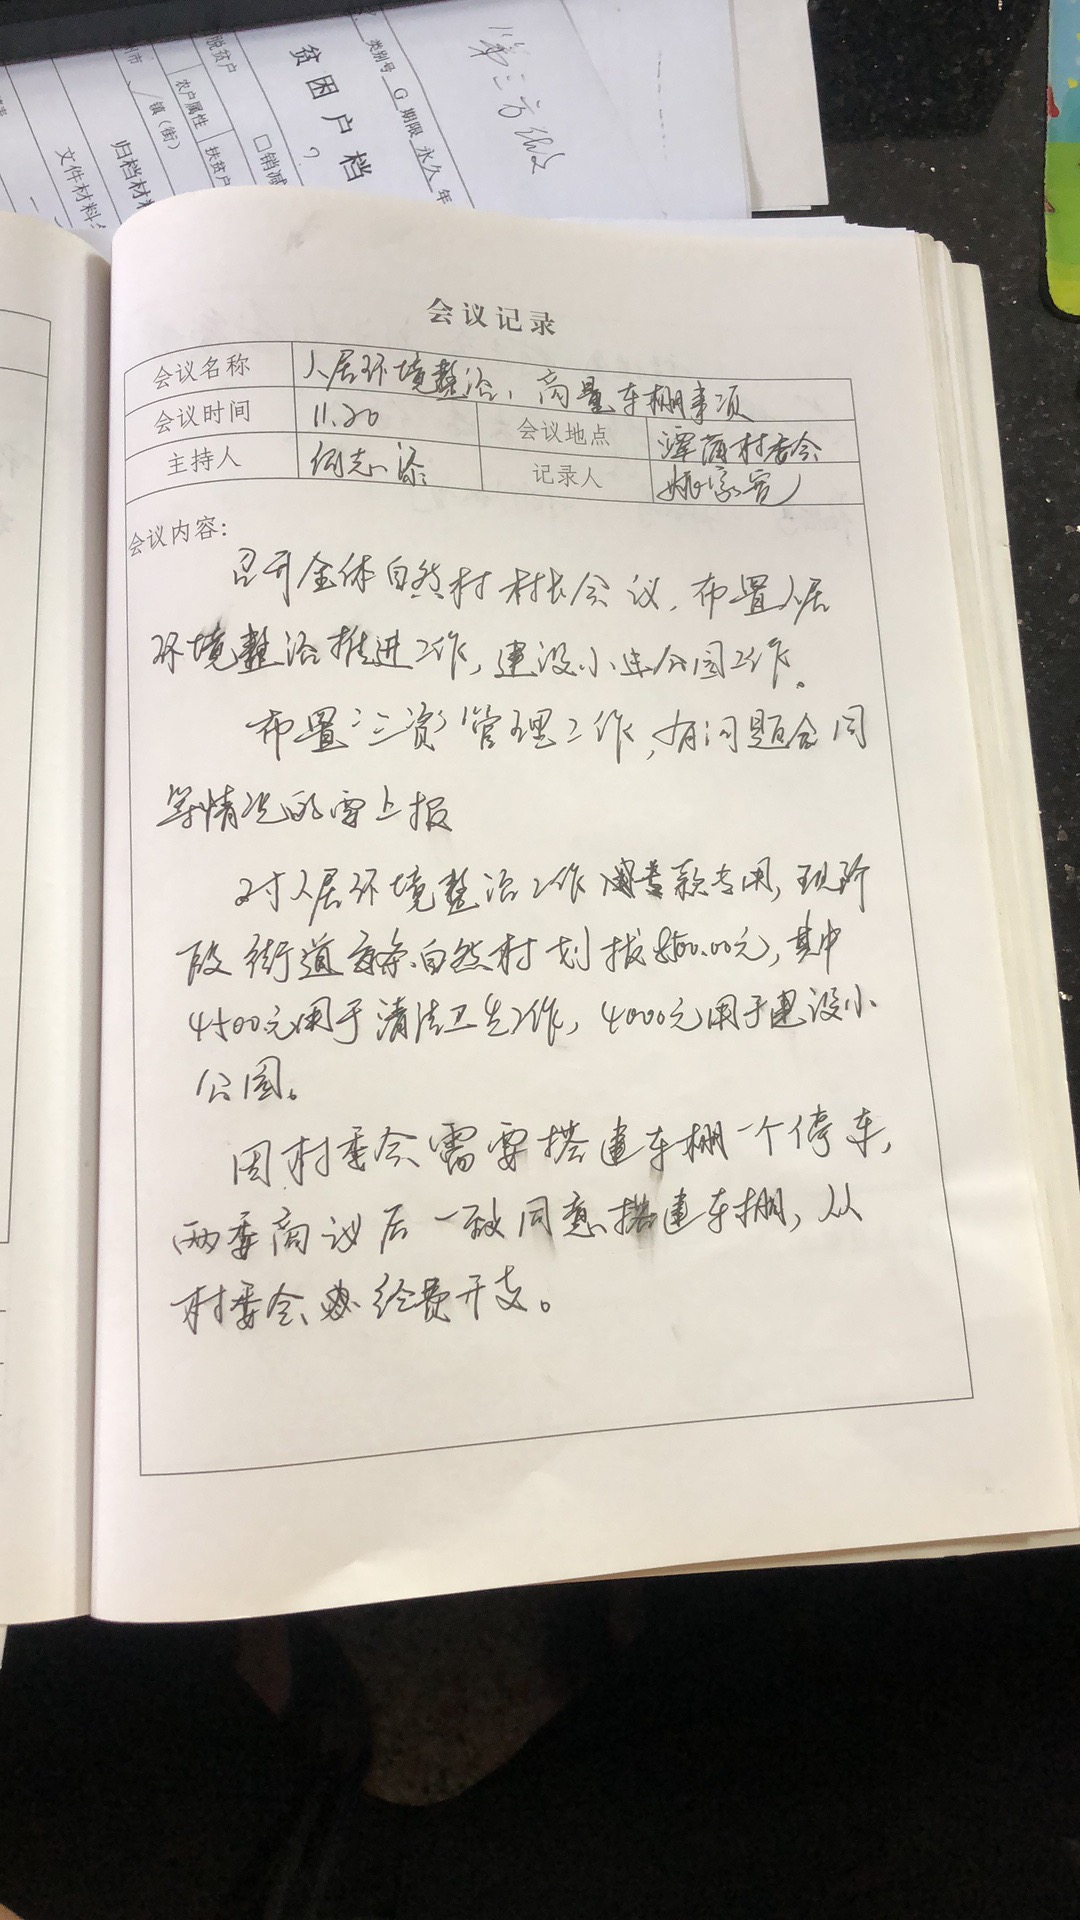 类别号 G 期限 永久 年
贫困户档
脱贫户
农户属性
扶贫户
□销减
镇（街）
归档材料
文件材料
会议记录
会议名称 人居环境整治、商量车棚事项
会议时间 11.20 会议地点 潭蒲村委会
主持人 何志添 记录人 姚家
会议内容：
召开全体自然村村长会议，布置人居
环境整治推进工作，建设小公园工作。
布置“三资”管理工作，有问题合同
等情况的需上报
对人居环境整治工作专款专用，现阶
段街道每条自然村划拨8500.00元，其中
4500元用于清洁卫生工作，4000元用于建设小
公园。
因村委会需要搭建车棚一个停车，
两委商议后一致同意搭建车棚，从
村委会办经费开支。